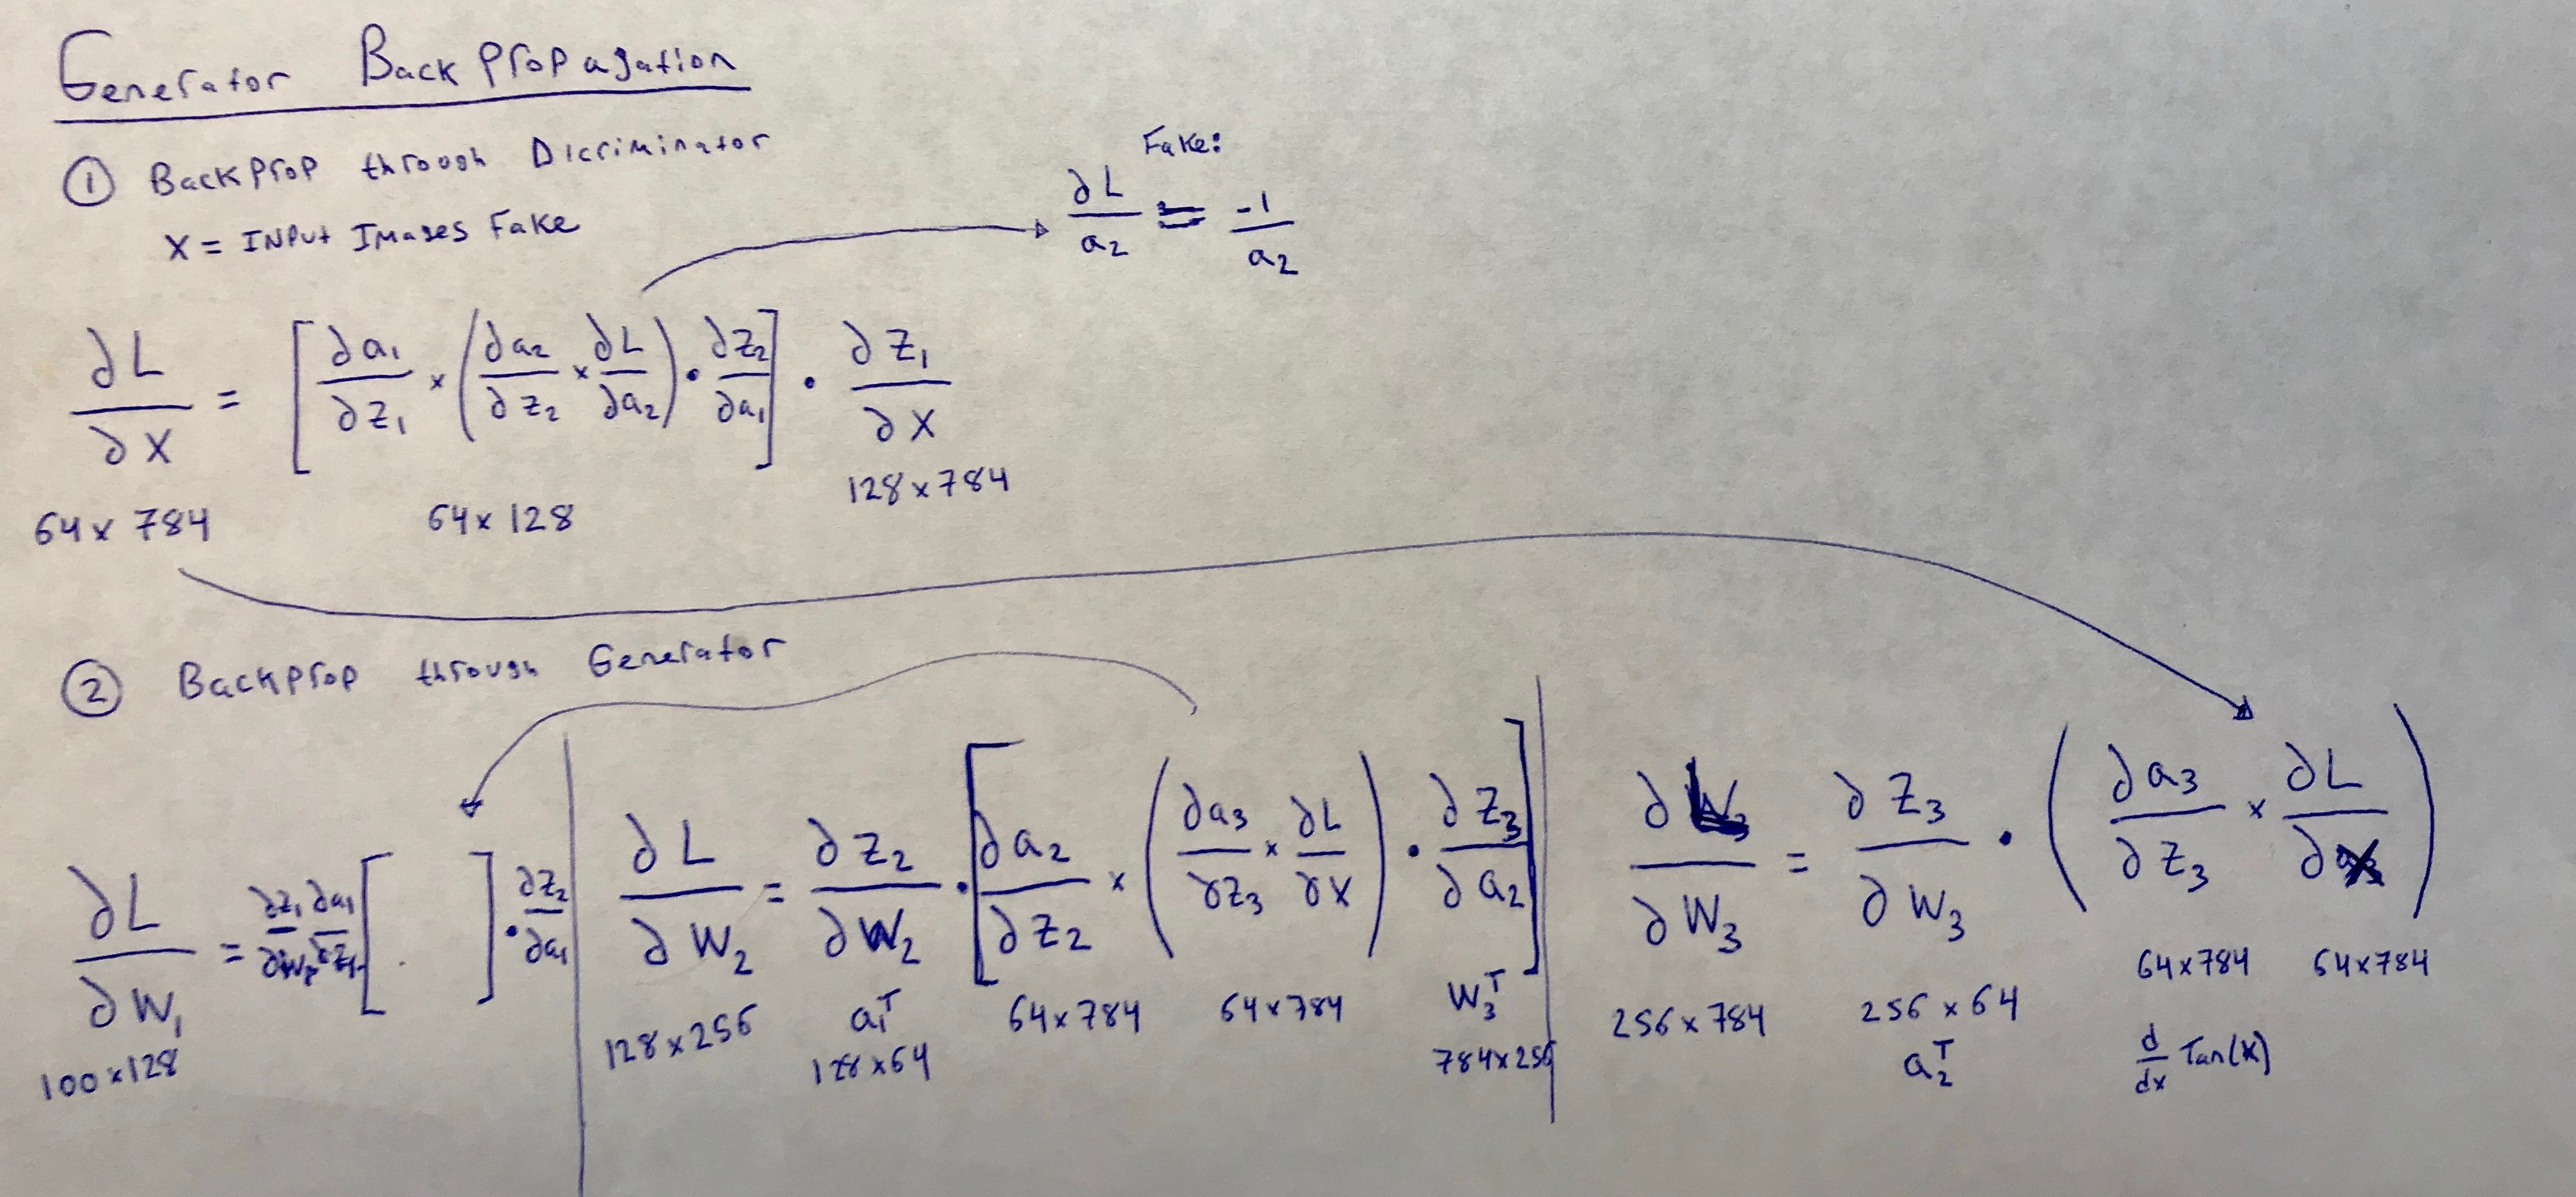 Generator BackPropagation
① BackProp through Dicriminator
X = INPut Images Fake
Fake:
∂L/a₂ = -1/a₂
∂L/∂X = [∂a₁/∂z₁ × (∂a₂/∂z₂ × ∂L/∂a₂) · ∂z₂/∂a₁] · ∂z₁/∂X
64 x 784 64 x 128 128 x 784
② Backprop through Generator
∂L/∂W₁ = ∂z₁/∂W₁ ∂a₁/∂z₁ [ ] · ∂z₂/∂a₁
100 x 128
∂L/∂W₂ = ∂z₂/∂W₂ · [∂a₂/∂z₂ × (∂a₃/∂z₃ × ∂L/∂X) · ∂z₃/∂a₂]
128 x 256 a₁ᵀ 128 x 64 64 x 784 64 x 784 W₃ᵀ 784 x 256
∂L/∂W₃ = ∂z₃/∂W₃ · (∂a₃/∂z₃ × ∂L/∂X)
256 x 784 256 x 64 64 x 784 64 x 784
a₂ᵀ d/dx Tan(x)